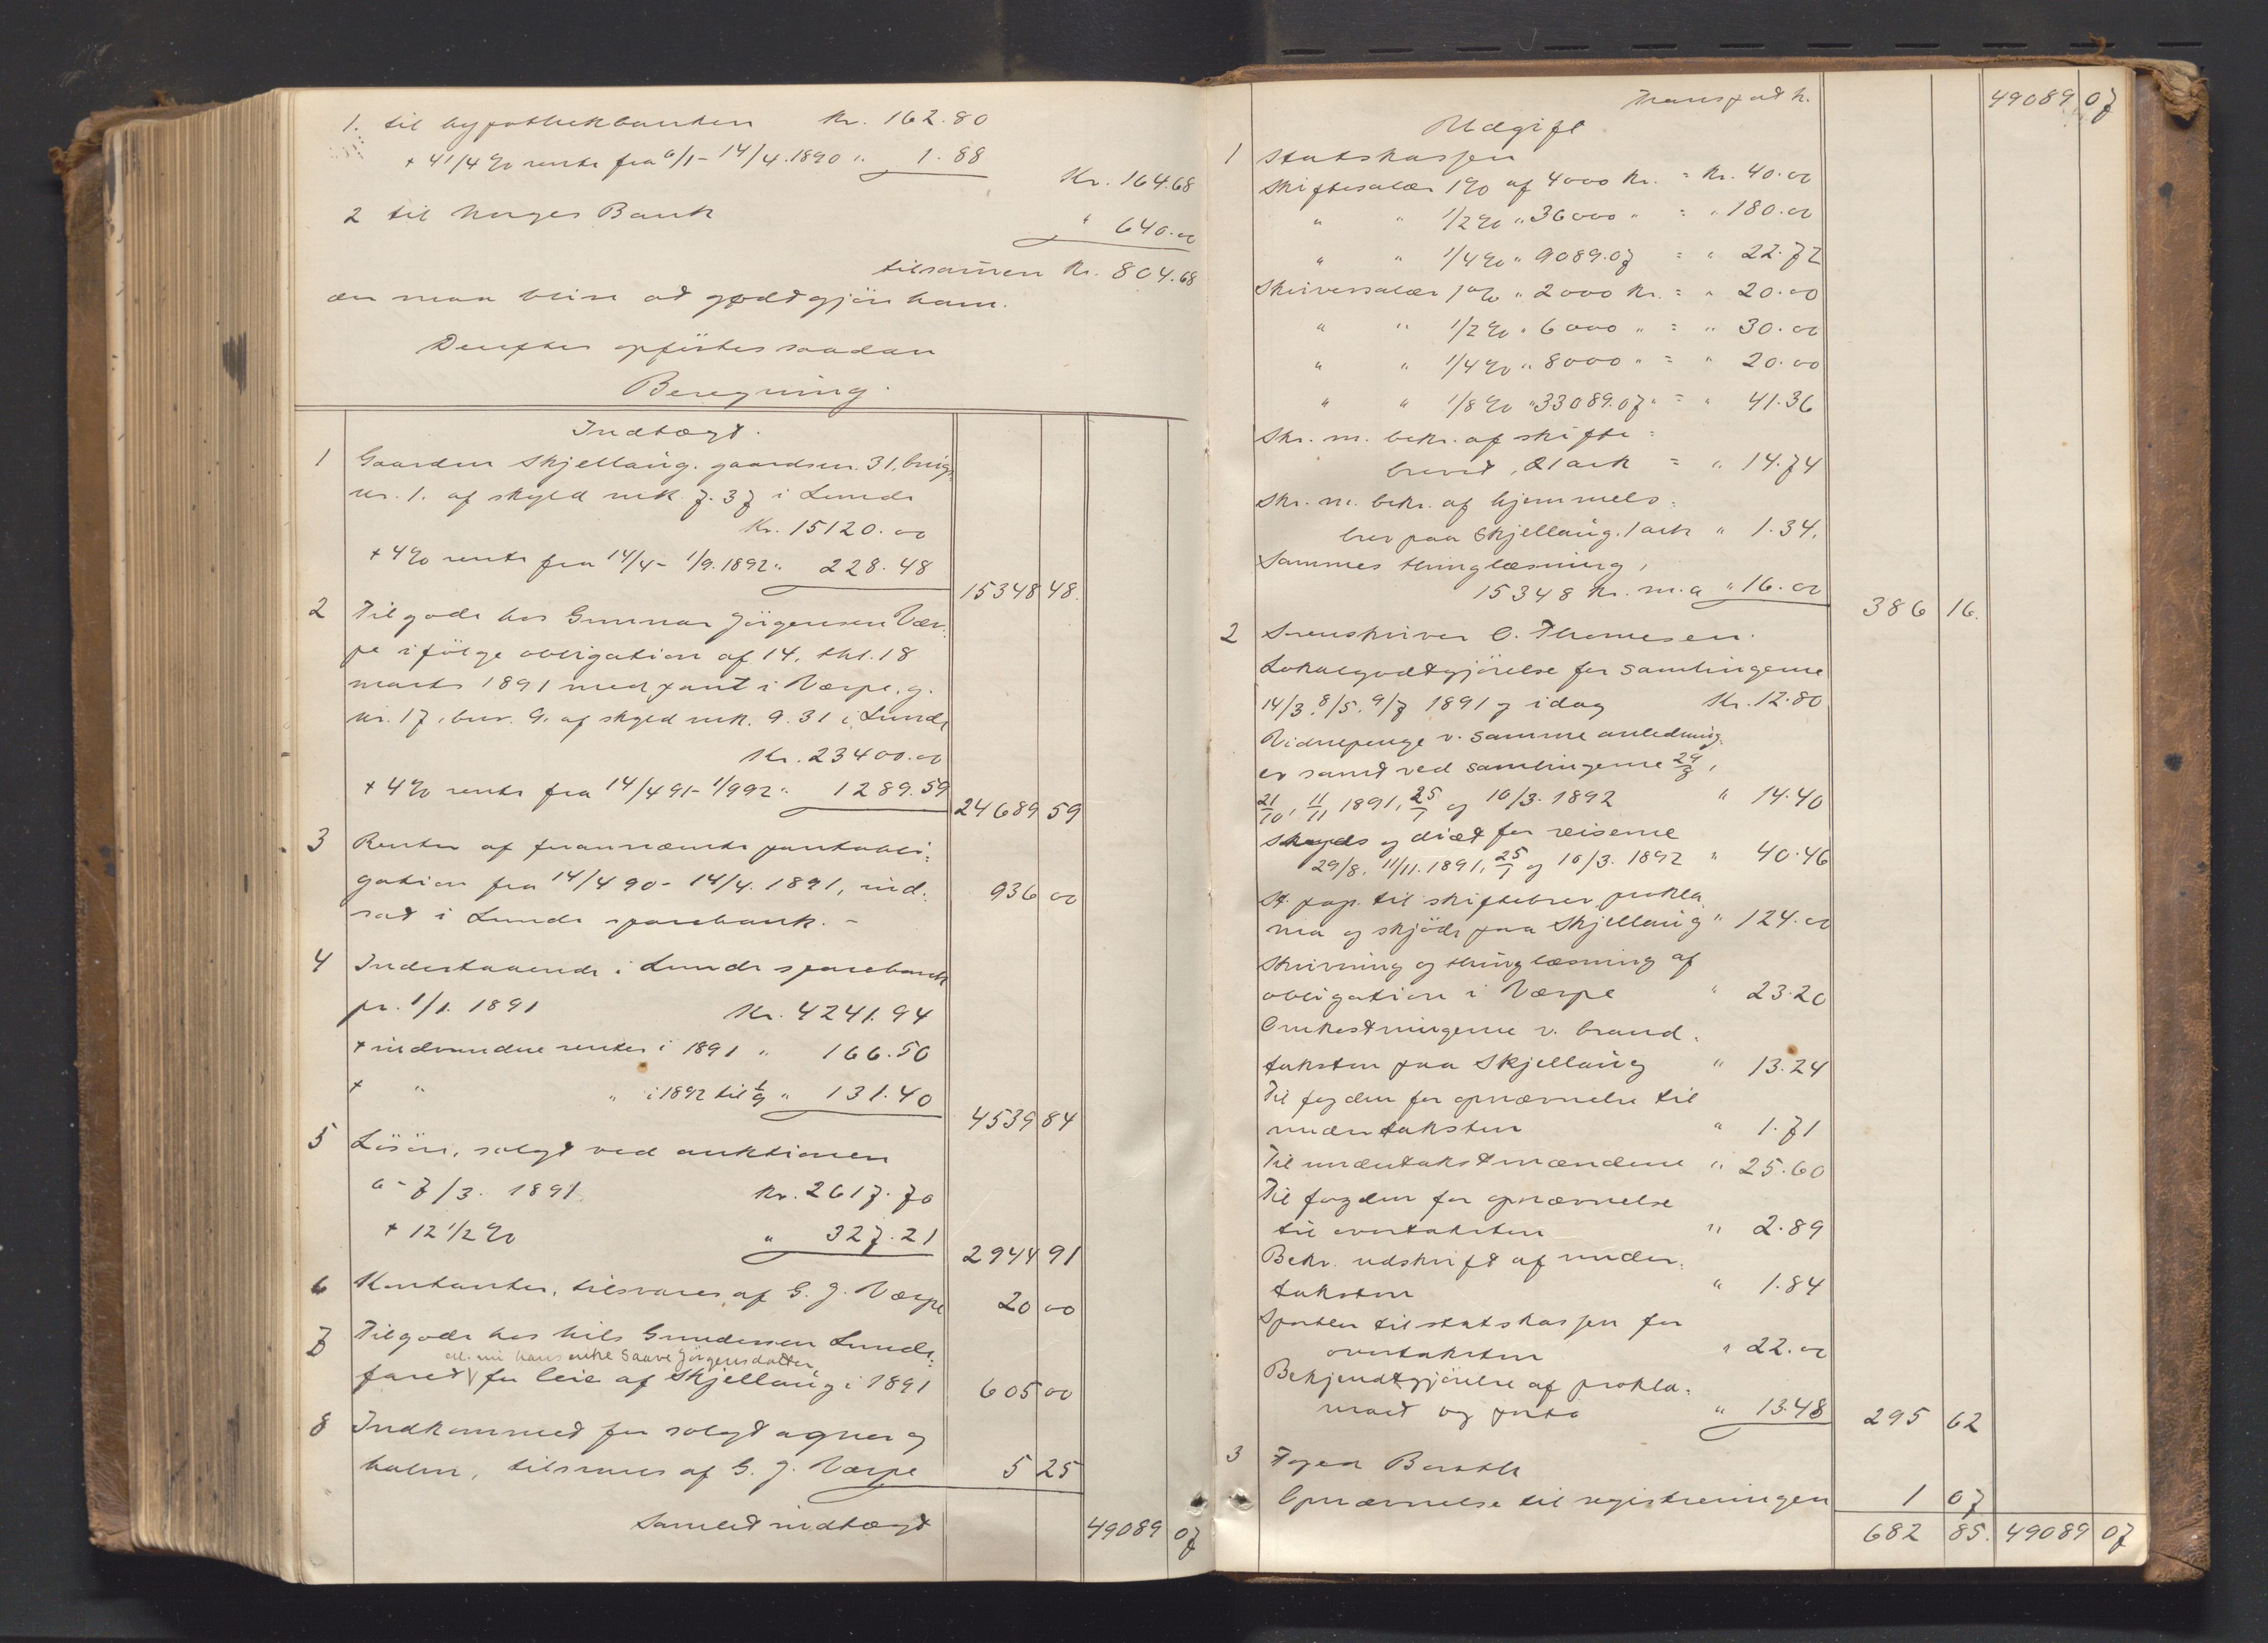 1. til hypothekbanken Kr. 162.80
+ 4 1/4 % rente fra 6/1 - 14/4. 1890 " 1.88
Kr. 164.68
2 til Norges Bank " 640.00
tilsammen Kr. 804.68
der maa blive at godtgjöre ham.
Derefter opförtes saadan
Beregning.
Indtægt.
1 Gaarden Skjellaug. gaardsnr. 31, brugs
nr. 1. af skyld mk. 7.37 i Lunde
Kr. 15120.00
+ 4 % rente fra 14/4 - 1/9. 1892 " 228.48
15348 48.
2 Tilgode hos Gunnar Jörgensen Vær-
pe ifölge obligation af 14. thl. 18
marts 1891 med pant i Værpe, g.
nr. 17, bnr. 9. af skyld mk. 9.31 i Lunde
Kr. 23400.00
+ 4 % rente fra 14/4 91 - 1/9 92 " 1289.59
24689 59
3 Renter af frannævnte pantobli-
gation fra 14/4 90 - 14/4. 1891, ind- 936 00
sat i Lunde sparebank. -
4 Indestaaende i Lunde sparebank
pr. 1/1. 1891 Kr. 4241.94
+ indvundne renter i 1891 " 166.50
+ " " i 1892 til 1/9 " 131.40
4539 84
5 Lösöre, solgt ved auktionen
6-7/3. 1891 Kr. 2617.70
+ 12 1/2 % " 327.21
2944 91
6 Kontanter, tilsvares af G. J. Værpe 20 00
7 Tilgode hos Nils Gundersen Lunde-
ell. nu hans enke Saave Jörgensdatter
faret for leie af Skjellaug i 1891 605 00
8 Indkommet for solgt agner og
halm, tilsvares af G. J. Værpe 5 25
Samlet indtægt 49089 07
Transport kr. 49089 07
Udgift
1 Statskassen
Skiftesalær 1 % af 4000 Kr. = Kr. 40.00
" " 1/2 % " 36000 " = " 180.00
" " 1/4 % " 9089.07 = " 22.72
Skriversalær 1 % " 2000 Kr. = " 20.00
" " 1/2 % " 6000 " = " 30.00
" " 1/4 % " 8000 " = " 20.00
" " 1/8 % " 33089.07 " = " 41.36
Skr. m. bekr. af skifte-
brevet, 21 ark = " 14.74
Skr. m. bekr. af hjemmels-
brev paa Skjellaug. 1 ark " 1.34.
Sammes thinglæsning,
15348 Kr. m.a " 16.00
386 16.
2 Sorenskriver C. Thomesen.
Lokalgodtgjörelse for samlingerne
14/3. 8/5. 9/7 1891 og idag Kr. 12.80
Vidnepenge v. samme anledning
er samt ved samlingerne 29/8,
21/10, 11/11 1891, 25/1 og 10/3. 1892 " 14.40
Skyds og diæt for reiserne
29/8. 11/11. 1891, 25/1 og 10/3. 1892 " 40.46
St. pap. til skiftebrev, prokla
ma og skjöde paa Skjellaug " 124.00
Skrivning og thinglæsning af
obligation i Værpe " 23.20
Omkostningerne v. brand-
taksten paa Skjellaug " 13.24
Til fogden for opnævnelse til
undertaksten " 1.71
Til undertakstmændene " 25.60
Til fogden for opnævnelse
til overtaksten " 2.89
Bekr. udskrift af under-
taksten " 1.84
Sportler til statskassen for
overtaksten " 22.00
Bekjendtgjörelse af prokla-
maet og porto " 13.48 295 62
3 Foged Barth
Opnævnelse til registreringen 1 07
682 85. 49089 07